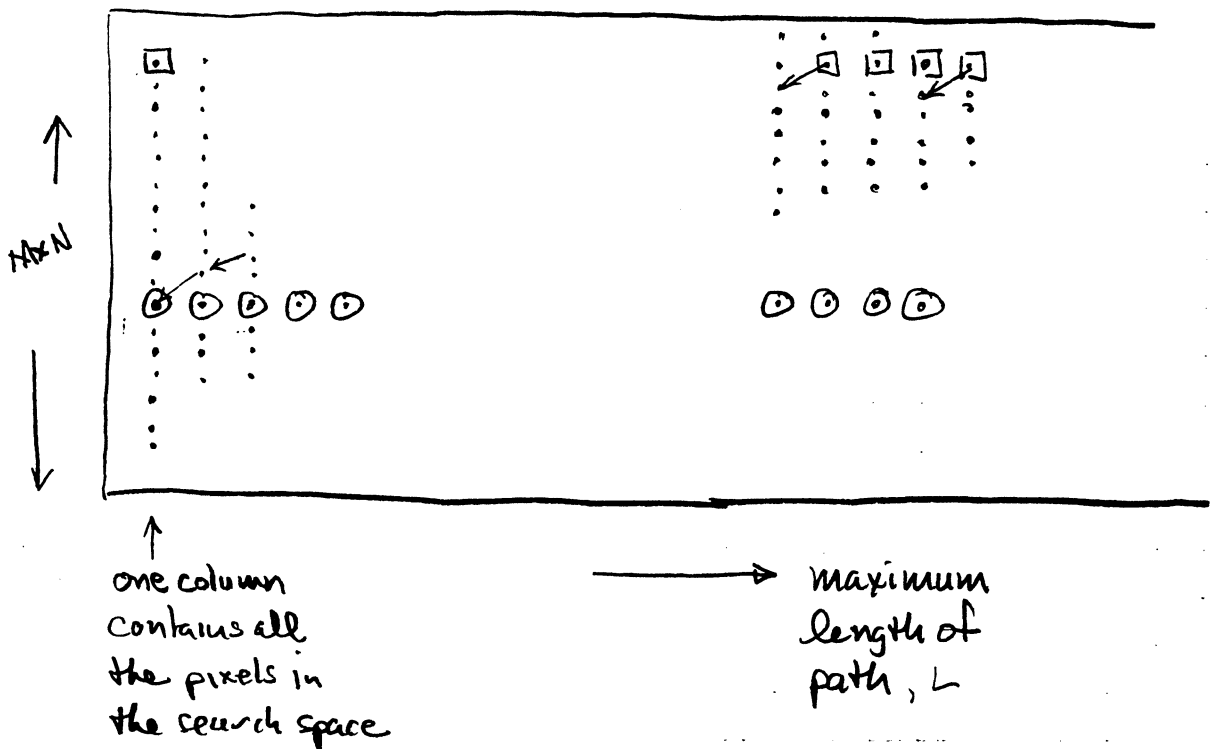 MxN
one column
contains all
the pixels in
the search space
maximum
length of
path, L